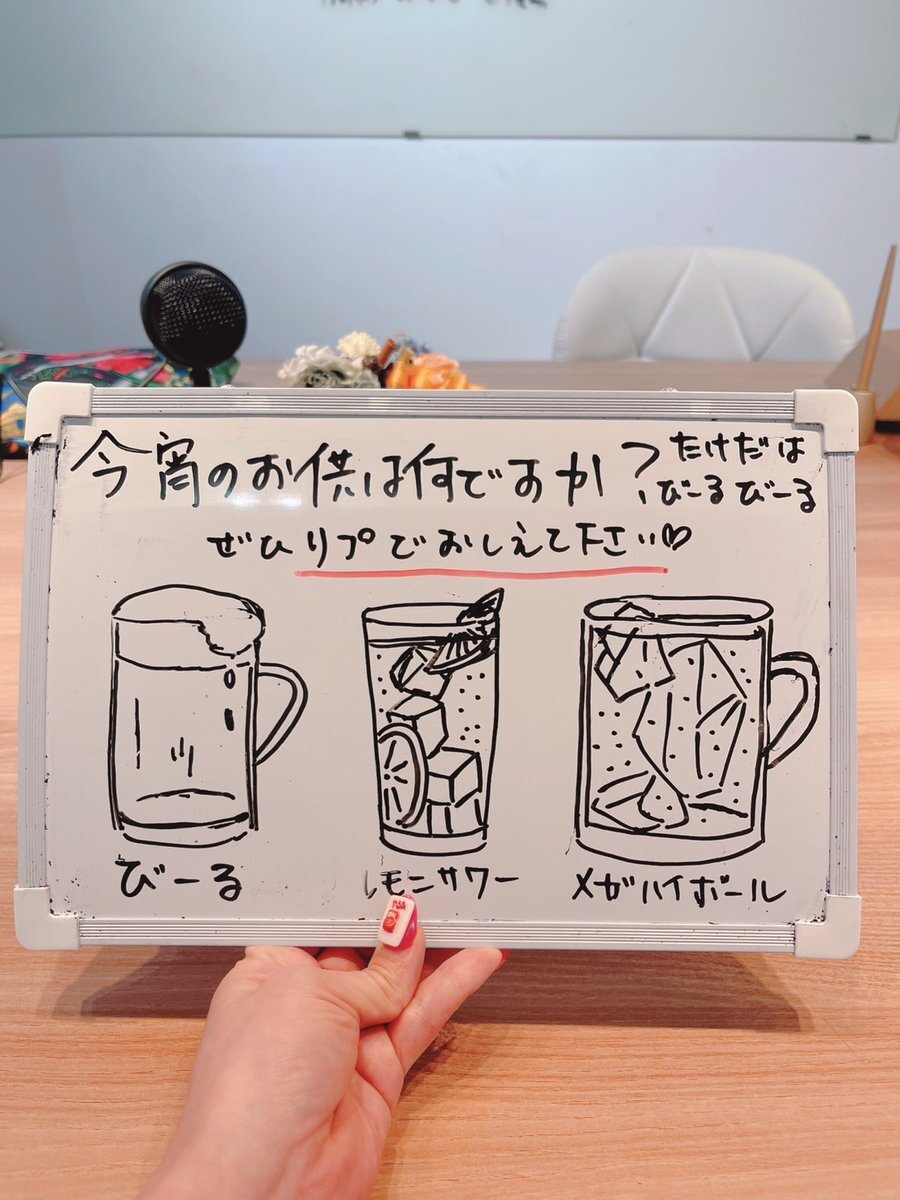 今宵のお供は何ですか?
たけだは
びーるびーる
ぜひリプでおしえて下さい♡
びーる
レモンサワー
メガハイボール